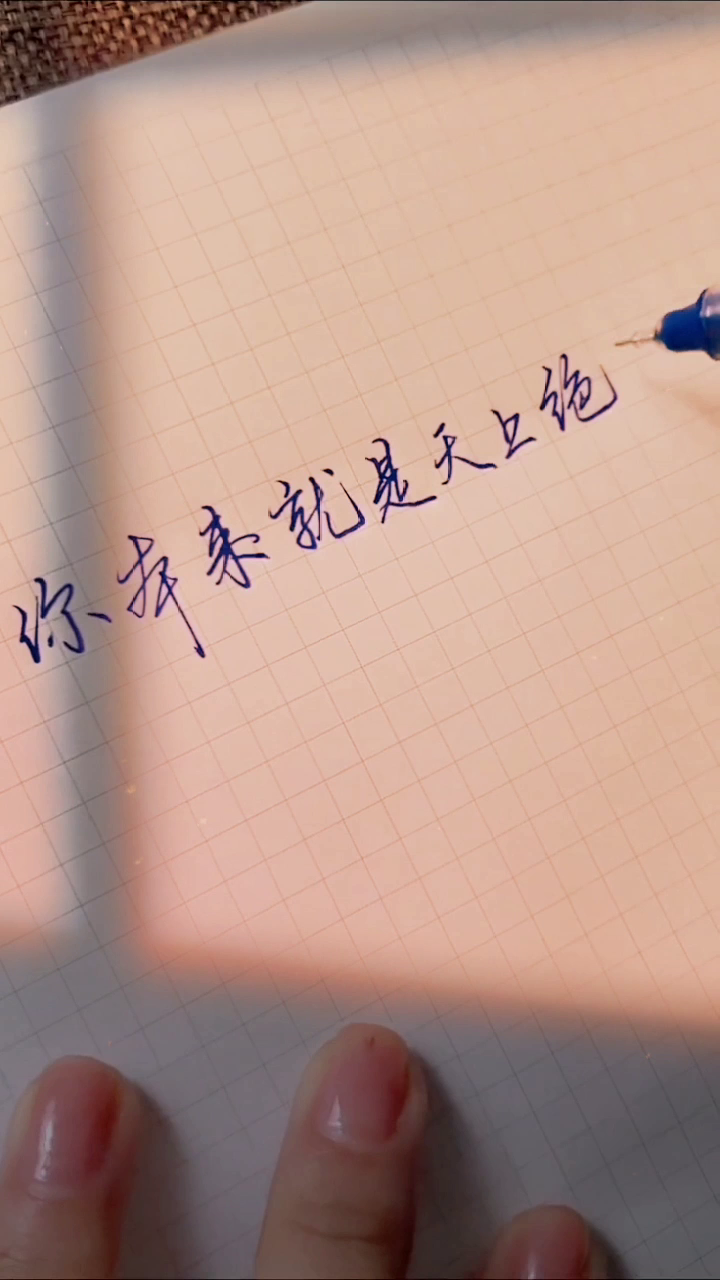 你本来就是天上绝